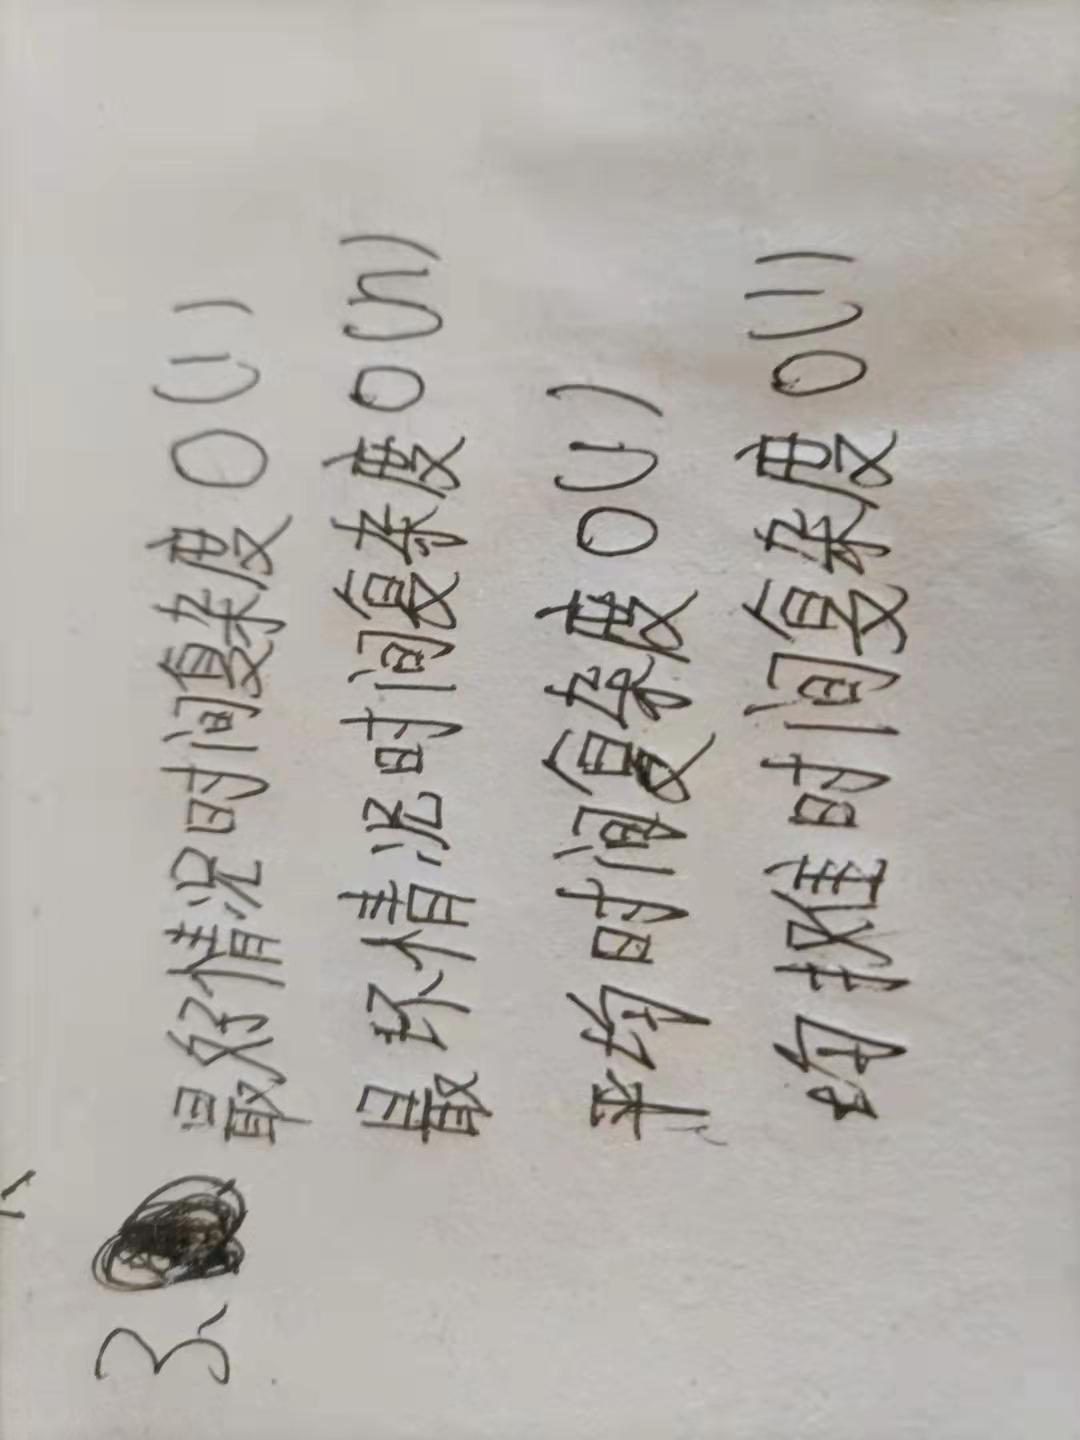 3、最好情况时间复杂度 O(1)
最坏情况时间复杂度 O(n)
平均时间复杂度 O(1)
均摊时间复杂度 O(1)